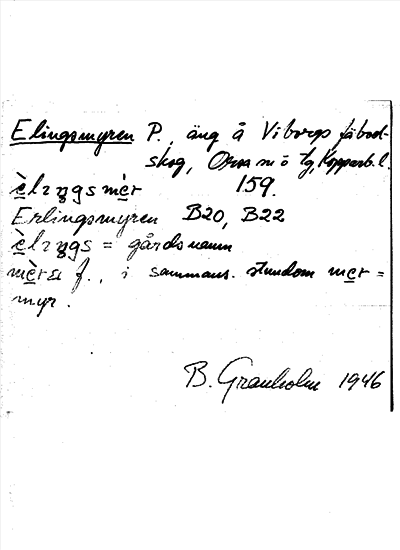 Elingsmyren P., äng å Viborgs fäbod-
skog, Orsa sn ö tg, Kopparb. l.
159.
èlıŋgsmèr
Erlingsmyren B20, B22
èlıŋgs = gårdsnamn
mèra f., i sammans. stundom mer =
myr.
B. Granholm 1946